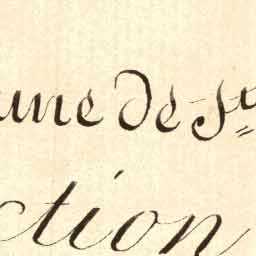 une de St
ction